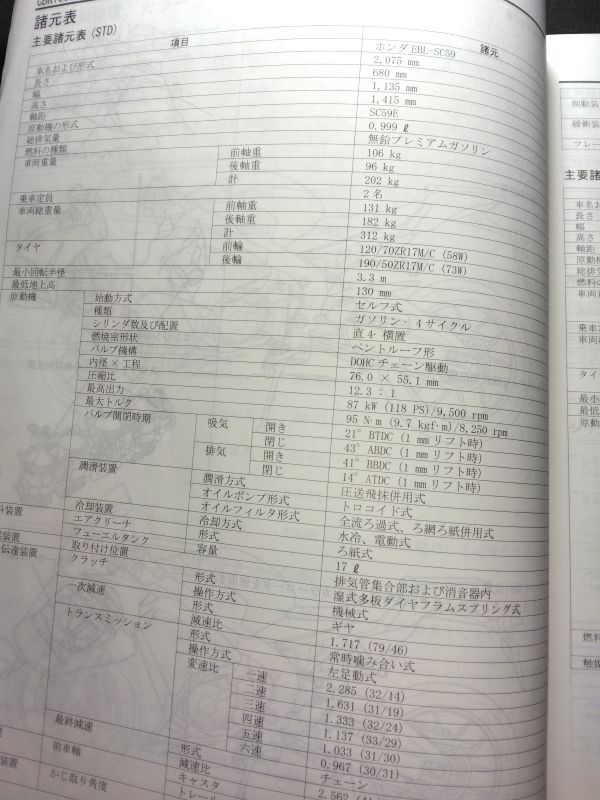 諸元表
主要諸元表 (STD)
項目 諸元
車名および形式 ホンダ EBL-SC59
長さ 2,075 mm
幅 680 mm
高さ 1,135 mm
軸距 1,415 mm
原動機の形式 SC59E
総排気量 0.999 ℓ
燃料の種類 無鉛プレミアムガソリン
車両重量 前軸重 106 kg
後軸重 96 kg
計 202 kg
乗車定員 2 名
車両総重量 前軸重 131 kg
後軸重 182 kg
計 312 kg
タイヤ 前輪 120/70ZR17M/C (58W)
後輪 190/50ZR17M/C (73W)
最小回転半径 3.3 m
最低地上高 130 mm
原動機 始動方式 セルフ式
種類 ガソリン・4サイクル
シリンダ数及び配置 直4 横置
燃焼室形状 ペントルーフ形
バルブ機構 DOHC チェーン駆動
内径 × 工程 76.0 × 55.1 mm
圧縮比 12.3 : 1
最高出力 87 kW (118 PS)/9,500 rpm
最大トルク 95 N·m (9.7 kgf·m)/8,250 rpm
バルブ開閉時期 吸気 開き 21° BTDC (1 mm リフト時)
閉じ 43° ABDC (1 mm リフト時)
排気 開き 41° BBDC (1 mm リフト時)
閉じ 14° ATDC (1 mm リフト時)
潤滑装置 潤滑方式 圧送飛抹併用式
オイルポンプ形式 トロコイド式
オイルフィルタ形式 全流ろ過式、ろ網ろ紙併用式
冷却装置 冷却方式 水冷、電動式
エアクリーナ 形式 ろ紙式
フューエルタンク 容量 17 ℓ
取り付け位置 排気管集合部および消音器内
クラッチ 形式 湿式多板ダイヤフラムスプリング式
操作方式 機械式
一次減速 形式 ギヤ
減速比 1.717 (79/46)
トランスミッション 形式 常時噛み合い式
操作方式 左足動式
変速比 一速 2.285 (32/14)
二速 1.631 (31/19)
三速 1.333 (32/24)
四速 1.137 (33/29)
五速 1.033 (31/30)
六速 0.967 (30/31)
最終減速 形式 チェーン
減速比 2.562
前車軸 キャスタ
かじ取り角度 トレール
制動装
緩衝装
フレー
主要諸
車名お
長さ
幅
高さ
軸距
原動機
総排気
燃料の
車両重
乗車定
車両総
タイ
最小
最低
原動
燃料
触媒